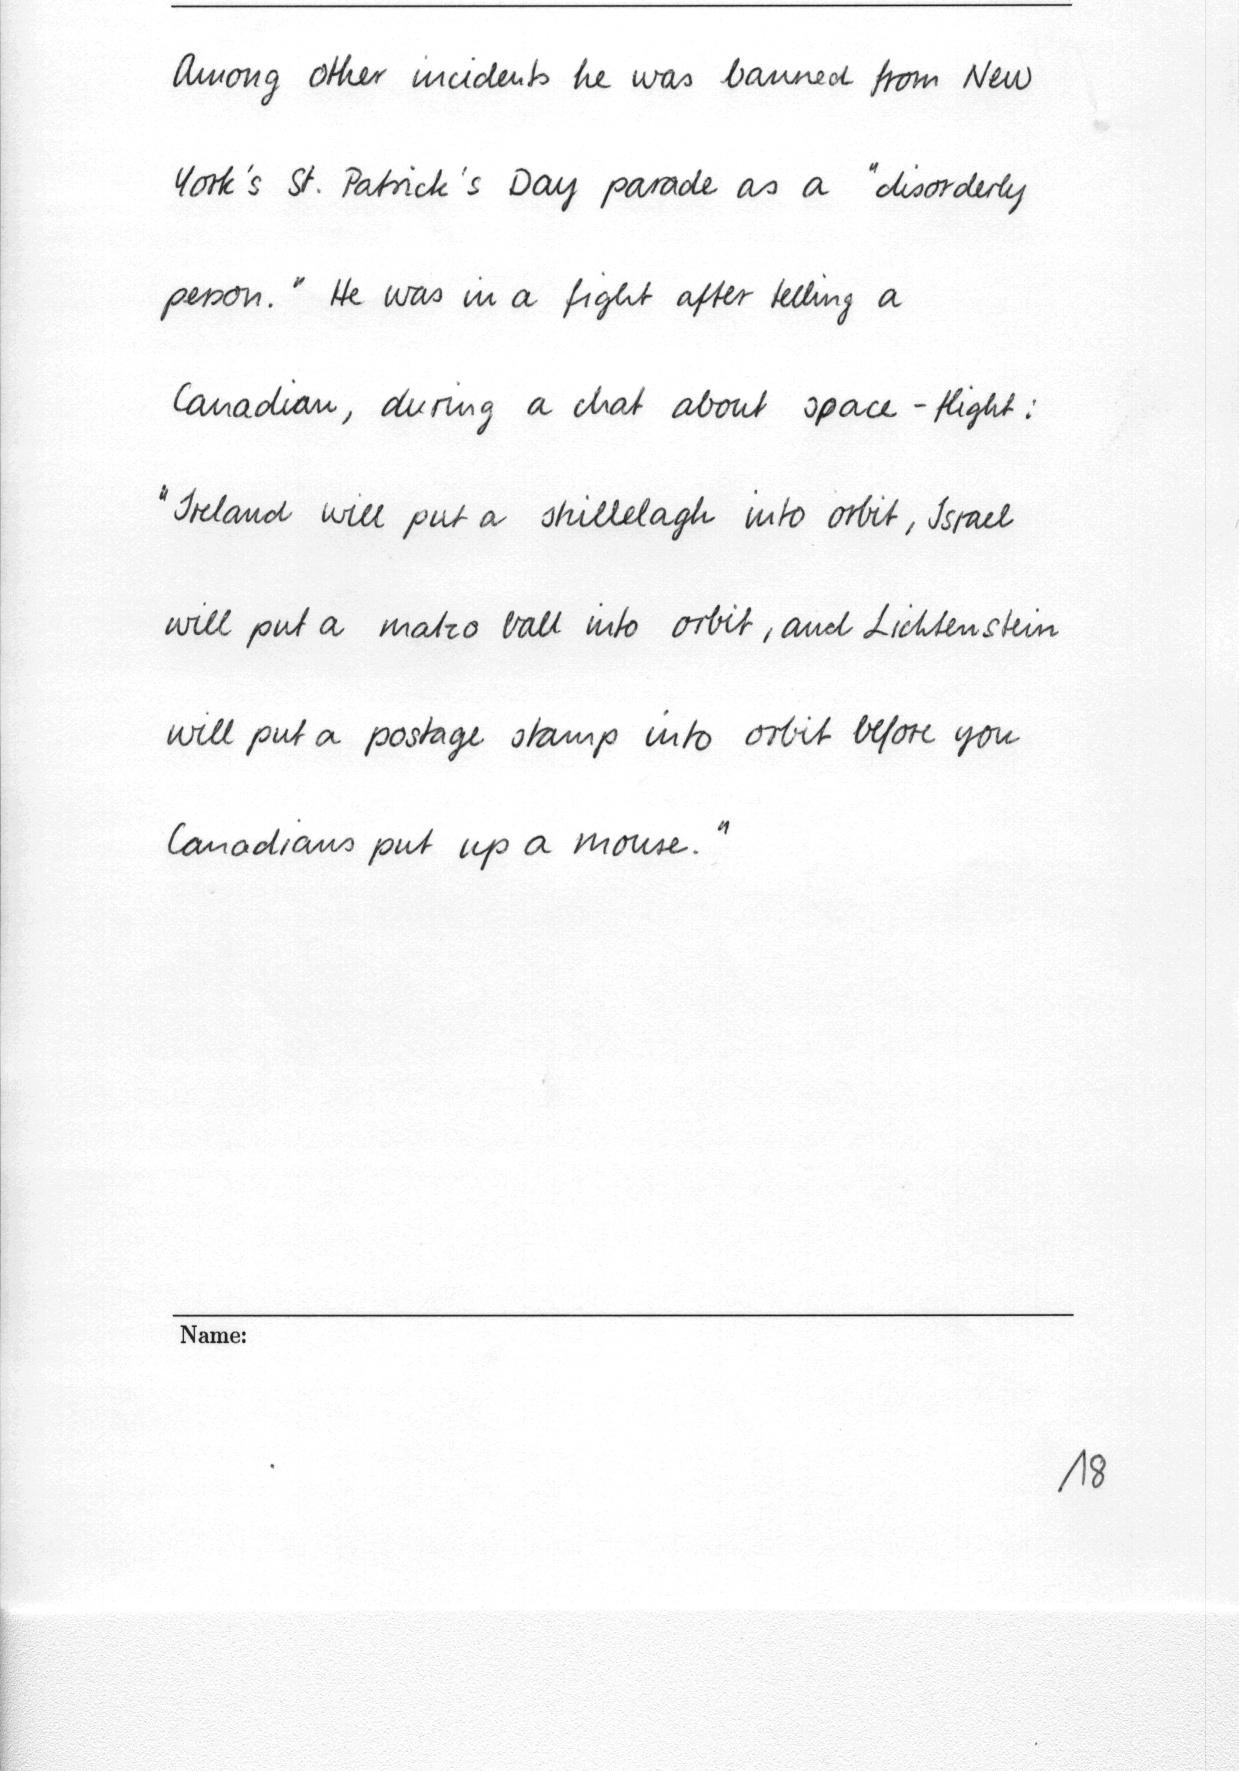 Among other incidents he was banned from New
York's St. Patrick's Day parade as a "disorderly
person." He was in a fight after telling a
Canadian, during a chat about space-flight:
"Ireland will put a shillelagh into orbit, Israel
will put a matzo ball into orbit, and Lichtenstein
will put a postage stamp into orbit before you
Canadians put up a mouse."
Name:
/18